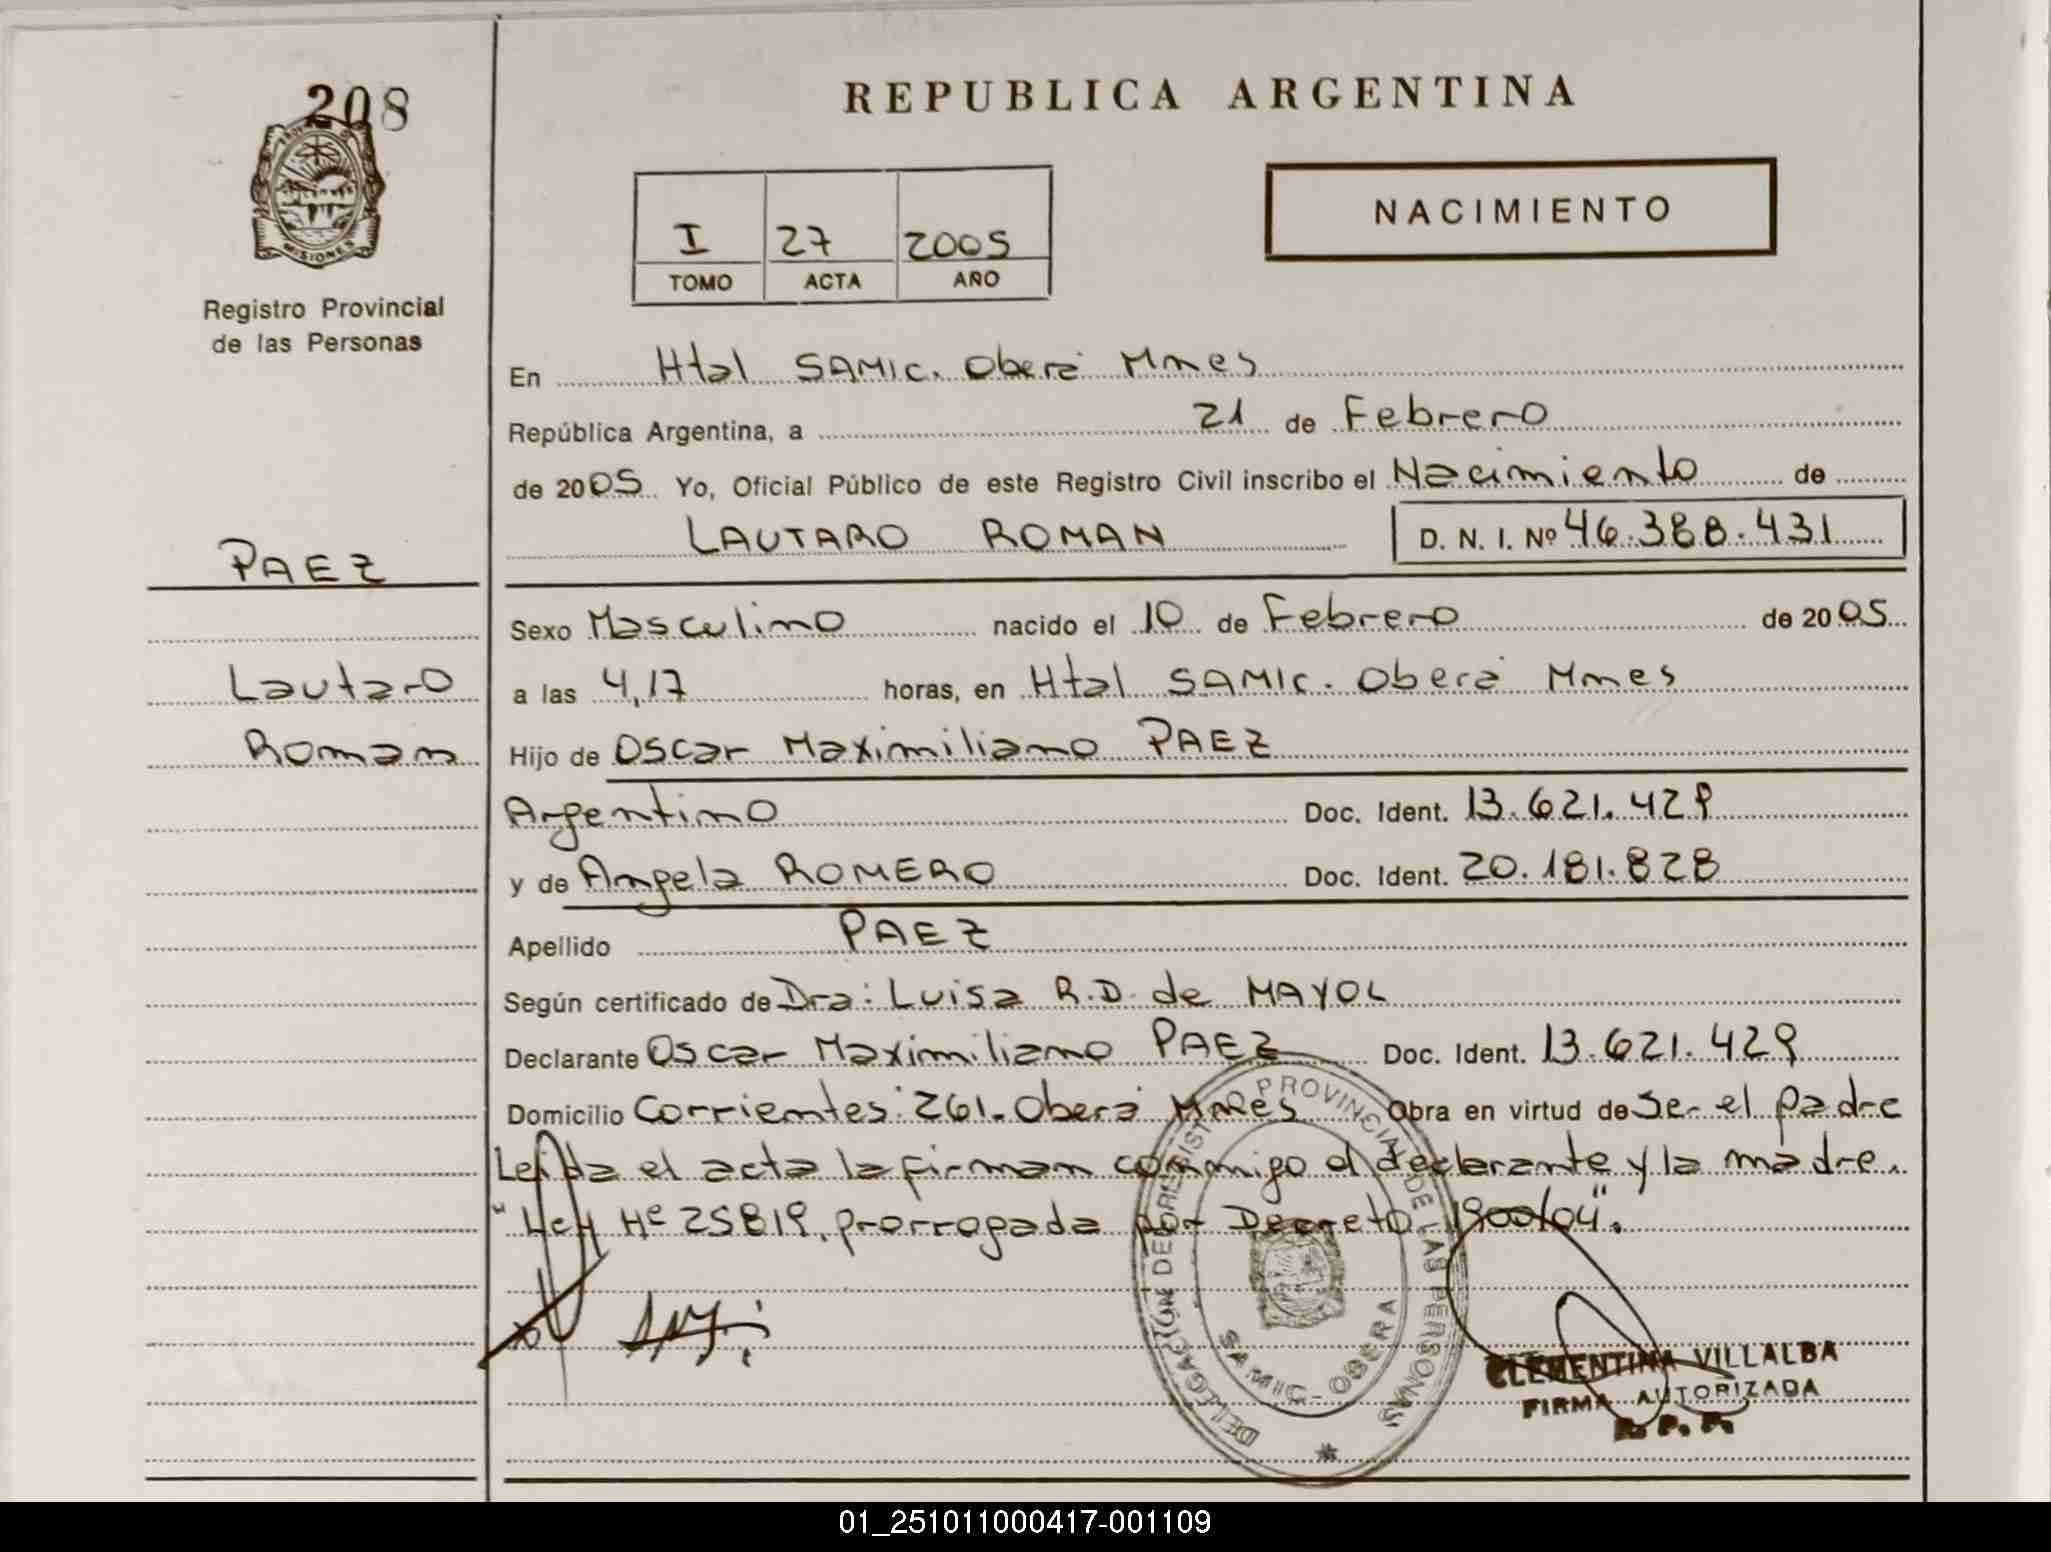 208
PROVINCIA DE
MISIONES
Registro Provincial
de las Personas
PAEZ
Lautaro
Roman
REPUBLICA ARGENTINA
I 27 2005
TOMO ACTA AÑO
NACIMIENTO
En Htal SAMIC. Oberá Mnes
República Argentina, a 21 de Febrero
de 2005 Yo, Oficial Público de este Registro Civil inscribo el Nacimiento de
LAUTARO ROMAN D. N. I. Nº 46.388.431
Sexo Masculino nacido el 10 de Febrero de 2005
a las 4,17 horas, en Htal SAMIC. Oberá Mnes
Hijo de Oscar Maximiliano PAEZ
Argentino Doc. Ident. 13.621.429
y de Angela ROMERO Doc. Ident. 20.181.828
Apellido PAEZ
Según certificado de Dra: Luisa R.D. de MAYOL
Declarante Oscar Maximiliano PAEZ Doc. Ident. 13.621.429
Domicilio Corrientes 261. Oberá Mnes Obra en virtud de Ser el padre
Leida el acta la firman conmigo el declarante y la madre.
"Ley Nº 25819, prorrogada por Decreto 1900/04".
DELEGACIÓN DEL REGISTRO PROVINCIAL DE LAS PERSONAS
SAMIC - OBERA
CLEMENTINA VILLALBA
FIRMA AUTORIZADA
R. P. P.
01_251011000417-001109